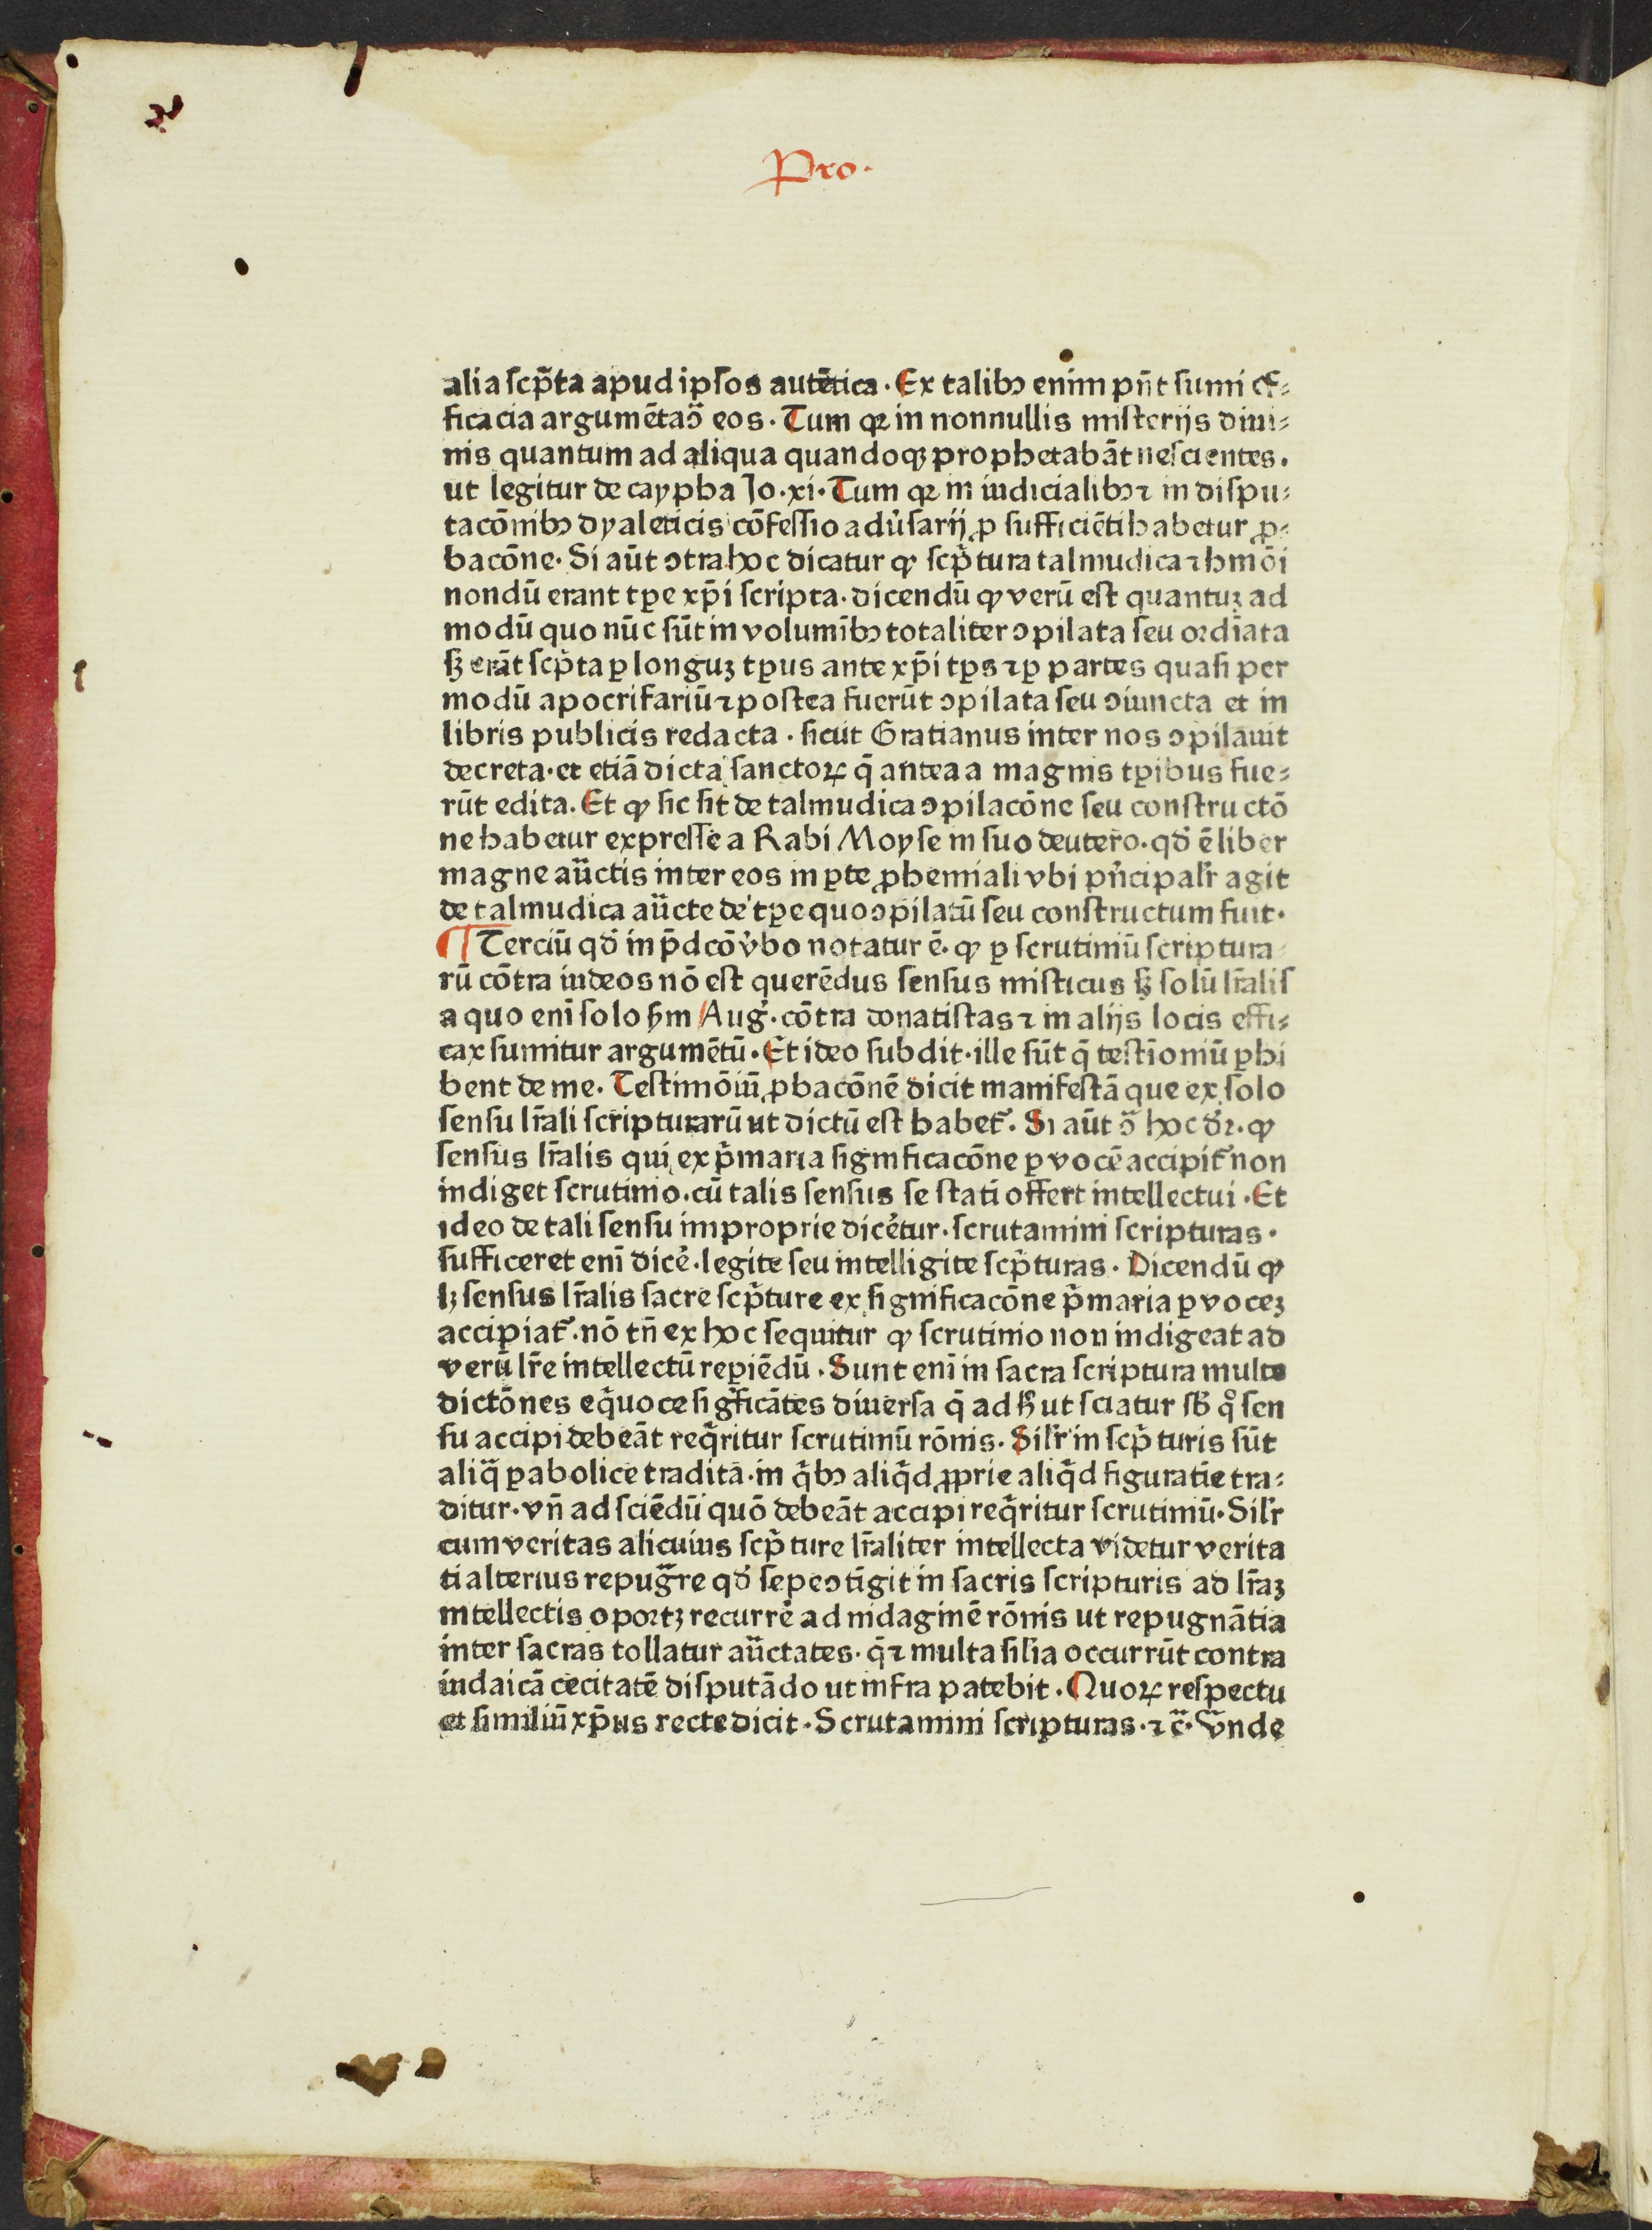 Pro·
alia scp̃ta apud ipsos autētica · Ex talibꝫ enim pn̄t sumi ef⸗
ficacia argumēta ↄ̃ eos · Tum qꝛ in nonnullis misterijs diui⸗
nis quantum ad aliqua quandoqꝫ prophetabāt nescientes .
ut legitur de caypha Jo · xi · Tum qꝛ in iudicialibꝫ ⁊ in dispu⸗
tacōnibꝫ dyaleticis cōfessio adũsarij ꝓ sufficiēti habetur ꝓ⸗
bacōne · Si aūt ↄtra hoc dicatur ꝙ scp̃tura talmudica ⁊ hmōi
nondū erant tꝑe xp̄i scripta · dicendū ꝙ verū est quantuꝫ ad
modū quo nūc sūt in volumībꝫ totaliter ↄpilata seu ordīata
sꝫ erāt scp̃ta ꝑ longuꝫ tꝑus ante xp̄i tꝑs ⁊ ꝑ partes quasi per
modū apocrifariū ⁊ postea fuerūt ↄpilata seu ↄiuncta et in
libris publicis redacta · sicut Gratianus inter nos ↄpilauit
decreta · et etiā dicta sanctoꝝ q̄ antea a magnis tꝑibus fue⸗
rūt edita . Et ꝙ sic sit de talmudica ↄpilacōne seu constructō
ne habetur expresse a Rabi Moyse in suo deutero · qd̓ ē liber
magne auc̄tis inter eos in ꝑte ꝓhemiali vbi pñcipalr̄ agit
de talmudica auc̄te de tꝑe quo ↄpilatū seu constructum fuit ·
¶ Terciū qd̓ in p̄dcō v̓bo notatur ē · ꝙ ꝑ scrutiniū scriptura
rū cōtra iudeos nō est querēdus sensus misticus sꝫ solū lr̄alis
a quo enī solo ẜm Aug̓ · cōtra donatistas ⁊ in alijs locis effi⸗
cax sumitur argumētū · Et ideo subdit · ille sūt q̄ testīoniū ꝑhi
bent de me · Testimōiū ꝓbacōnē dicit manifestā que ex solo
sensu lr̄ali scripturarū ut dictū est habet᷑ · Si aūt ↄ̃ hoc d̓r · ꝙ
sensus lr̄alis qui ex p̃maria significacōne ꝑ vocē accipit᷑ non
indiget scrutinio · cū talis sensus se stati offert intellectui · Et
ideo de tali sensu improprie dicētur · scrutamini scripturas ·
sufficeret enī dicē̓ · legite seu intelligite scp̃turas · Dicendū ꝙ
lꝫ sensus lr̄alis sacre scp̃ture ex significacōne p̃maria ꝑ voceꝫ
accipiat᷑ · nō tn̄ ex hoc sequitur ꝙ scrutinio non indigeat ad
verū lr̄e intellectū reꝑiēdū · Sunt enī in sacra scriptura multe
dictōnes eq̃uoce sigficātes diuersa q̄ ad ħ ut sciatur sb̄ q̊ sen
su accipi debeāt req̃ritur scrutiniū rōnis · Silr̄ in scp̃turis sūt
aliq̄ ꝑabolice tradita · in q̃bꝫ aliq̃d ꝓprie aliq̃d figuratīe tra⸗
ditur · vn̄ ad sciēdū quō debeāt accipi req̃ritur scrutiniū · Silr̄
cum veritas alicuius scp̃ture lr̄aliter intellecta videtur verita
ti alterius repug̃re qd̓ sepe ↄtīgit in sacris scripturis ad lr̄aꝫ
intellectis oportꝫ recurrē̓ ad indaginē rōnis ut repugnātia
inter sacras tollatur auc̄tates · q̄ ⁊ multa silīa occurrūt contra
iudaicā cecitatē disputādo ut infra patebit · Quoꝝ respectu
et similiū xp̄us recte dicit · Scrutamini scripturas · ⁊ c̄ · Vnde